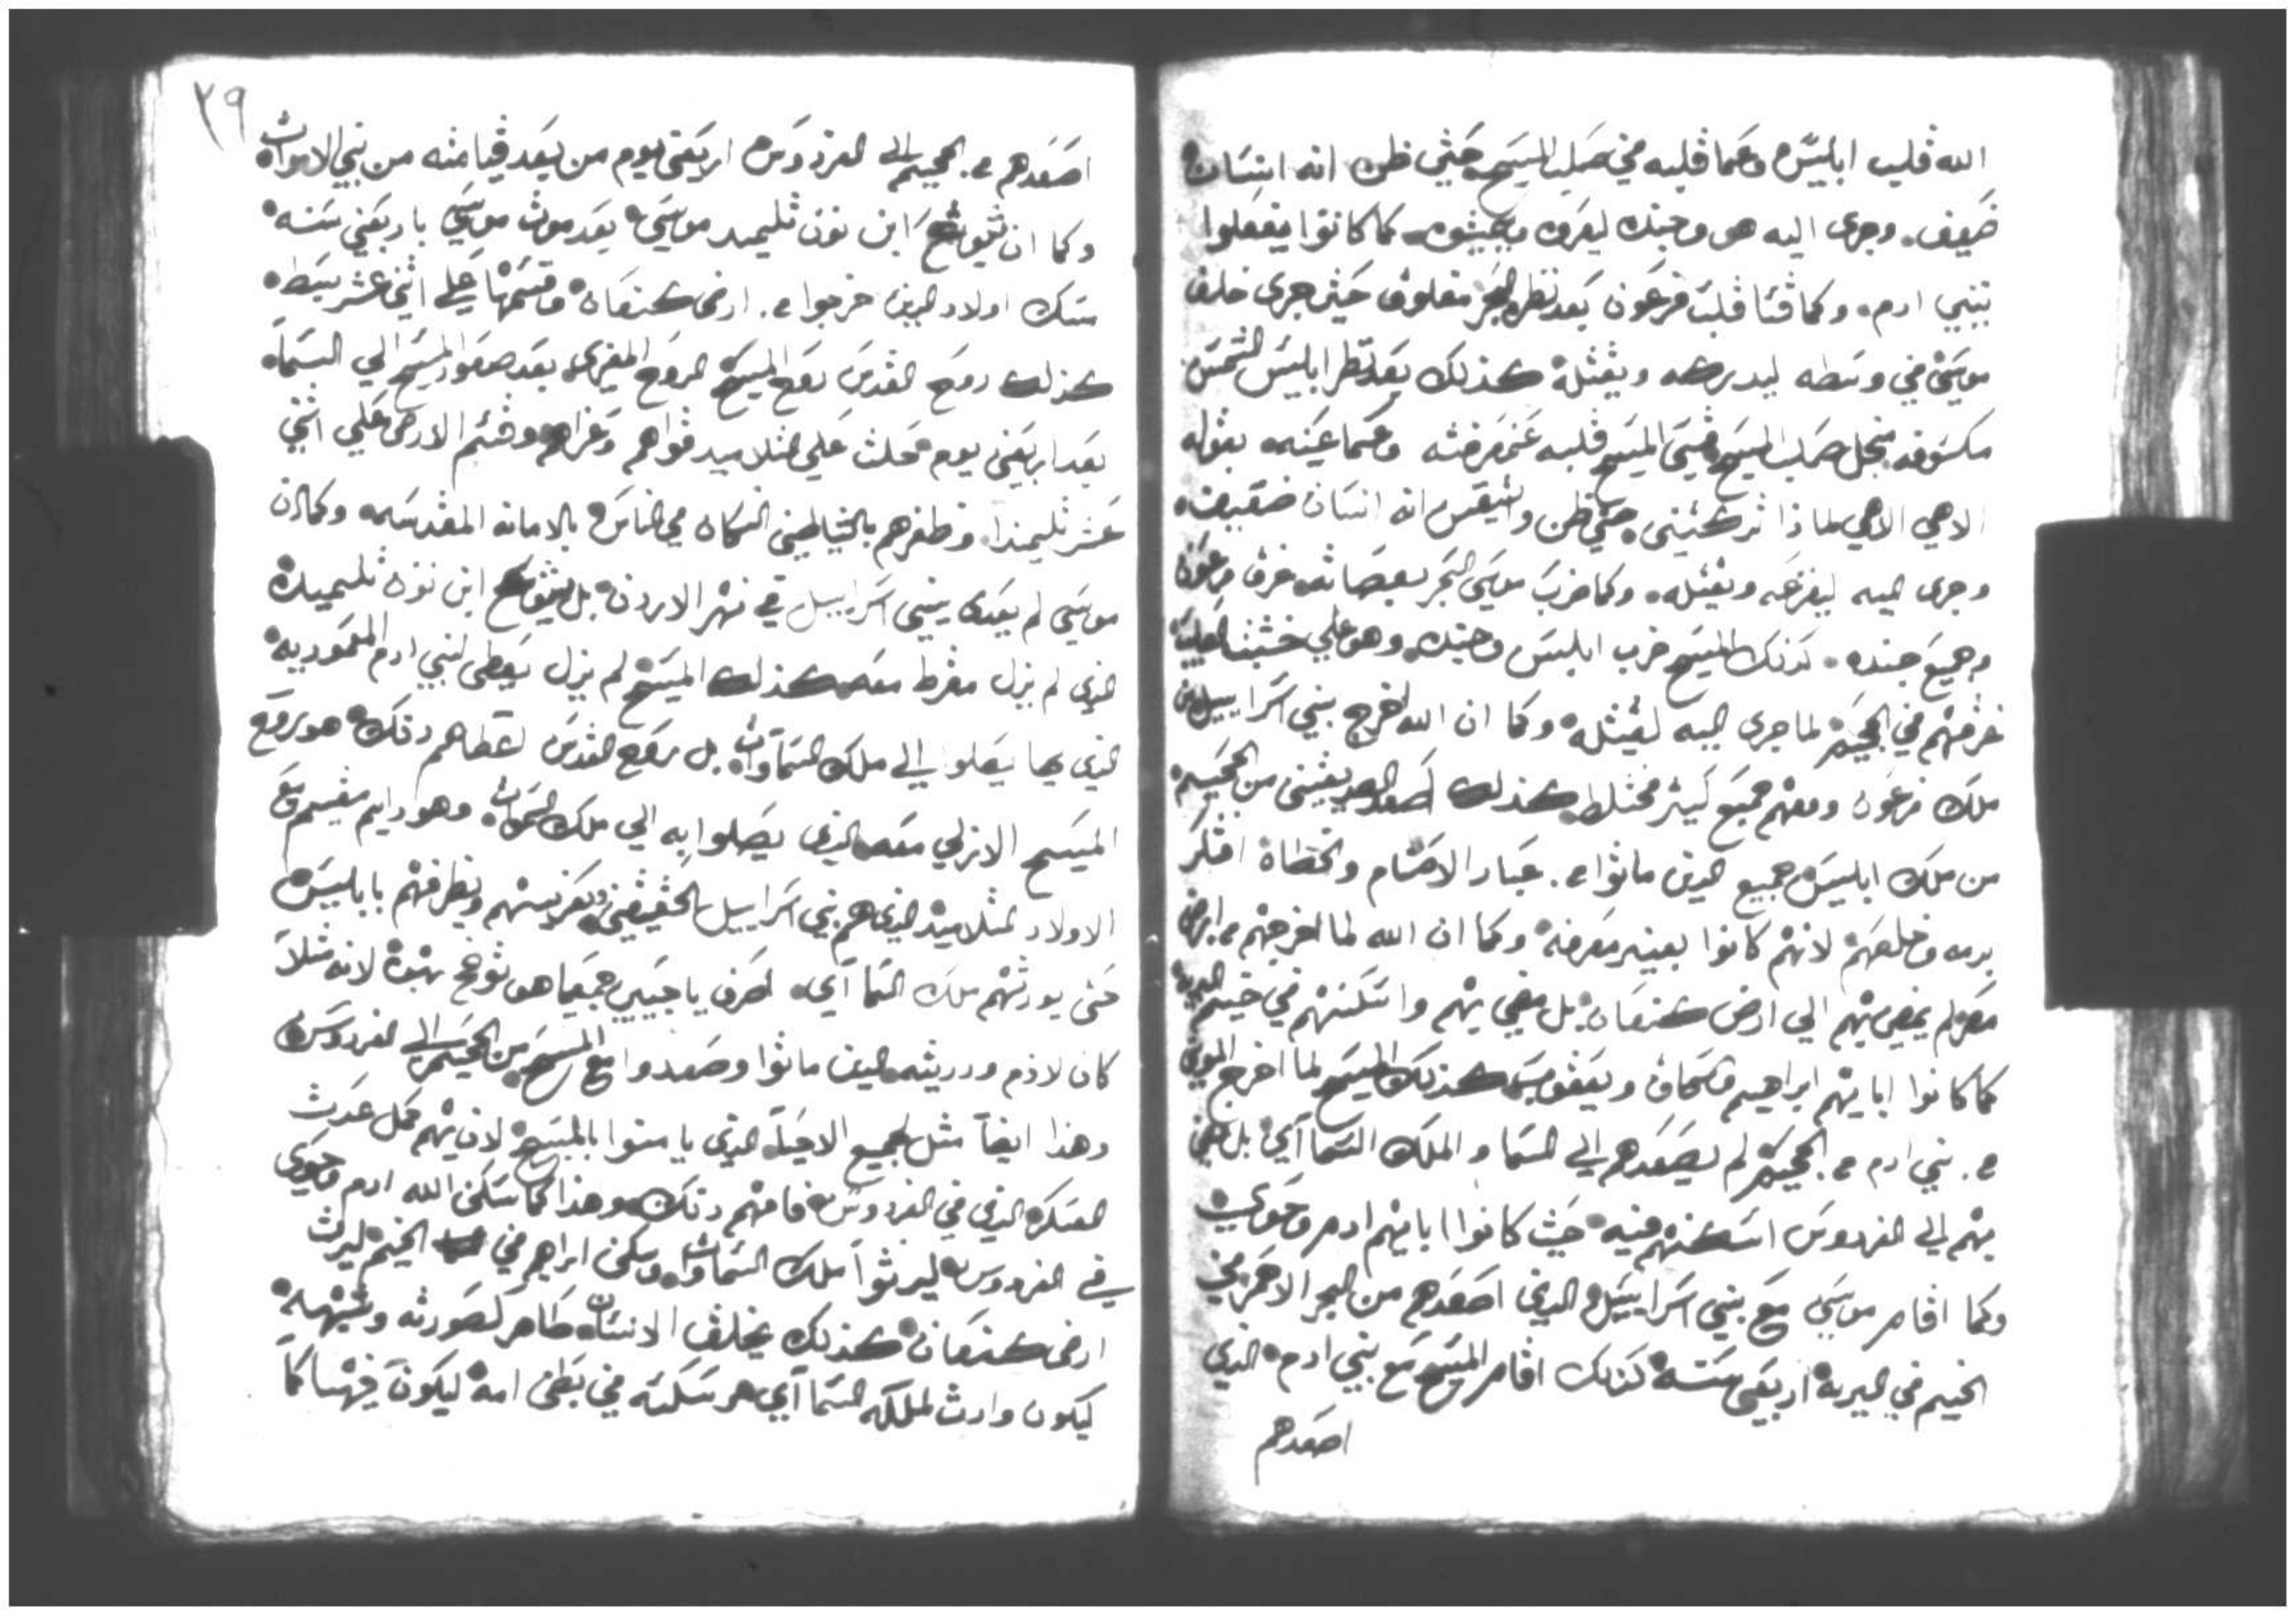 الله قلب ابليس وعما قلبه في صلب المسيح حتي ظن انه انسان
ضعيف. وجري اليه هو وجنده كما كانوا يفعلوا
ببني ادم. وكما قسا قلب فرعون بعد نظره البحر مفلوق حتي جري خلف
موسي في وسطه ليدركه ويقتله كذلك بعد نظر ابليس الشمس
مكسوفه منجل صلب المسيح قسي المسيح قلبه عن معرفته وعما عينيه بقوله
الاهي الاهي لما ذا تركتني حتي ظن وتيقن انه انسان ضعيف
وجري اليه ليفزعه ويقتله. وكما ضرب موسي البحر بعصاته غرق فرعون
وجميع جنده. كذلك المسيح ضرب ابليس وجنده وهو علي خشبة الصليب
غرقهم في الجحيم لما جري اليه ليقتله وكما ان الله اخرج بني اسراييل من
ملك فرعون ومعهم جميع كثير مختلط كذلك اصعد الصديقين من الجحيم
من ملك ابليس وجميع الذين ماتوا من عباد الاصنام والخطاة افتكر
بدمه وخلصهم لانهم كانوا بغير معرفه وكما ان الله لما اخرجهم من ارض
مصر لم يمضي بهم الي ارض كنعان بل مضي بهم واسكنهم في خيم البريه
كما كانوا ابايهم ابراهيم واسحاق ويعقوب كذلك المسيح لما اخرج الموتي
من بني ادم من الجحيم لم يصعدهم الي السما والملك السماآي بل مضي
بهم الي الفردوس اسكنهم فيه حيث كانوا ابايهم ادم وحوي
وكما اقام موسي مع بني اسراييل الذي اصعدهم من البحر الاحمر في
الخيم في البريه اربعين سنه كذلك اقام المسيح مع بني ادم الذي
اصعدهم
٢٩
اصعدهم من الجحيم الي الفردوس اربعين يوم من بعد قيامته من بين الاموات
وكما ان يشوع ابن نون تلميد موسي بعد موت موسي باربعين سنه
سكن اولاد الذين خرجوا من ارض كنعان وقسمها علي اثني عشر سبطه
كذلك روح القدس روح المسيح الروح المعزي بعد صعود المسيح الي السما
بعد اربعين يوم حلت علي التلاميد قواهم وعزاهم وقسم الارض علي اثني
عشر تلميذا وظفرهم بالشياطين السكان في الناس بالامانه المقدسه وكما ان
موسي لم يعدي ببني اسراييل في نهر الاردن بل يشوع ابن نون تلميده
الذي لم يزل معه كذلك المسيح لم يزل يعطي لبني ادم المعموديه
الذي بها يصلوا الي ملك السماوات بل روح القدس اعطاهم ذلك هو روح
المسيح الازلي معه الذي يصلوا به الي ملك السموات وهو دايم مقيم مع
الاولاد التلاميذ الذي هم بني اسراييل الحقيقي ويظفرهم بابليس
حتي يورثهم ملك السماآي. اعرف يا حبيبي جميع ما هو لانه مثلا
كان لادم وذريته الذين ماتوا وصعدوا مع المسيح من الجحيم الي الفردوس
وهذا ايضا مثل لجميع الاحيا الذي يامنوا بالمسيح لان بهم كمل عدة
العسكر الذي في الفردوس وهذا كما سكن الله ادم وحوي
في الفردوس ليرثوا ملك السماوات وسكن ابراهيم في الخيم ليرث
ارض كنعان كذلك يخلق الانسان طاهر لصورته وشبهه
ليكون وارث لملكه السماآي هو سكنه في بطن امه ليكون فيها كما